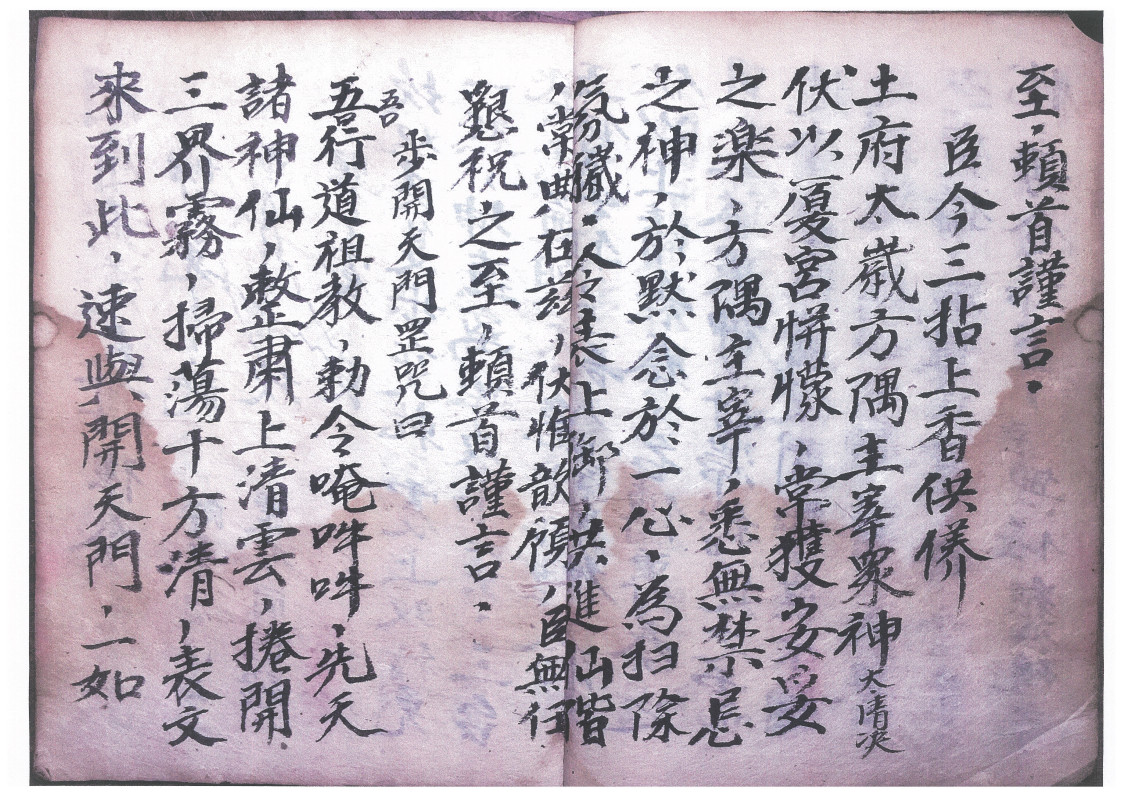 至，頼首謹言。
臣今三拈上香供俻
土府太歲方隅主宰眾神大清次
伏以憂宮恲懞，常獲安安
之楽，方隅主宰，悉無禁忌
之神，於默念於一心，為扫除
氛穢。人令表上御，供進仙階
，常典在兹，伏惟歆領，臣無任
懇祝之至，頼首謹言。
吾步開天門罡咒曰
五行道祖教，勅令唵吽吽，先天
諸神仙，整肅上清雲，捲開
三界霧，掃蕩十方清，表文
來到此，速與開天門，一如